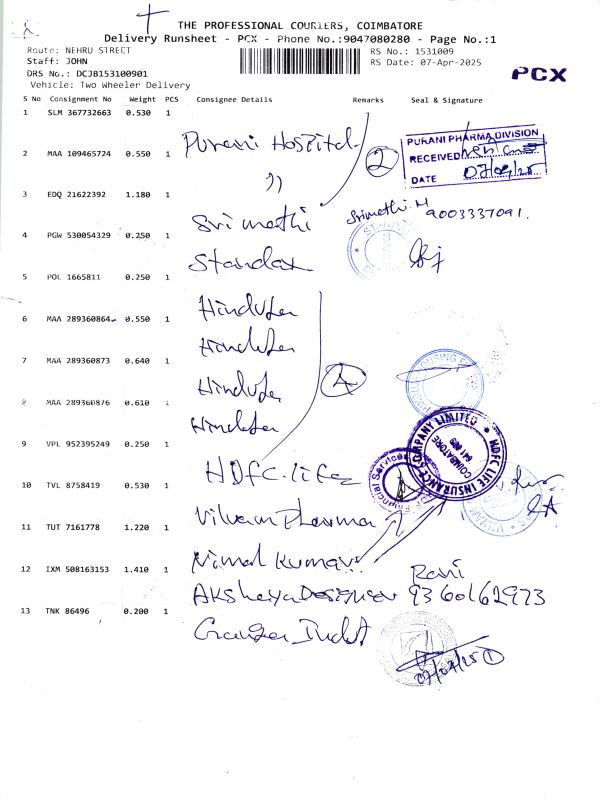 THE PROFESSIONAL COURIERS, COIMBATORE
Delivery Runsheet - PCX - Phone No.:9047080280 - Page No.:1
Route: NEHRU STREET RS No.: 1531009
Staff: JOHN RS Date: 07-Apr-2025
DRS No.: DCJB153100901 PCX
Vehicle: Two Wheeler Delivery
S No Consignment No Weight PCS Consignee Details Remarks Seal & Signature
1 SLM 367732663 0.530 1
Purani Hospital
PURANI PHARMA DIVISION
2 MAA 109465724 0.550 1 2 RECEIVED
" DATE 07/04/25
3 EDQ 21622392 1.180 1
Srimathi Srimathi.M 9003337091.
4 PGW 530054329 0.250 1
Standax
5 POL 1665811 0.250 1
Hinduja
6 MAA 289360864 0.550 1
Hinduja
7 MAA 289360873 0.640 1 4
Hinduja
8 MAA 289360876 0.610 1
Hinduja
9 VPL 952395249 0.250 1
HDFC LIFE INSURANCE COMPANY LIMITED
COIMBATORE
HDFC-life
10 TVL 8758419 0.530 1
Vikram Pharma
11 TUT 7161778 1.220 1
Nimal Kumar
12 IXM 508163153 1.410 1 Rani
Akshaya Designer 9360162973
13 TNK 86496 0.200 1
07/04/25 1